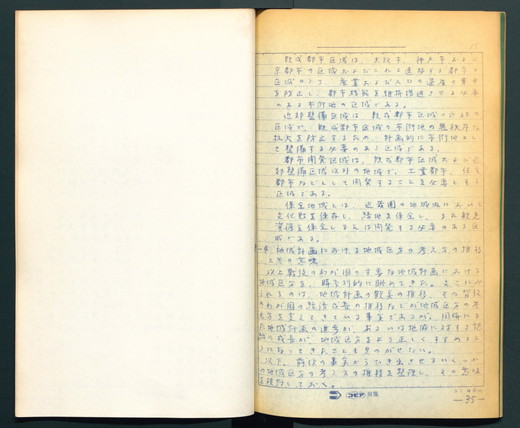 既成都市区域は、大阪市、神戸市および
京都市の区域およびこれと連接する都市の
区域のうち、産業および人口の過度の集中
を防止し、都市機能を維持増進させる必要
のある市街地の区域である。
近郊整備区域は、既成都市区域の近郊の
区域で、既成都市区域の市街地の無秩序な
拡大を防止するため、計画的に市街地とし
て整備する必要のある区域である。
都市開発区域は、既成都市区域および近
郊整備区域以外の地域で、工業都市、住宅
都市などとして開発することを必要とする
区域である。
保全地域とは、近畿圏の地域内において
文化財を保存し、緑地を保全し、また観光
資源を保全しまたは開発する必要のある区
域である。
地域計画における地域区分の考え方の推移
とその意味
以上戦後のわが国の主要な地域計画における
地域区分を、時系列的に眺めてきた。
れるのは、地域計画の数の推移、その背後
のわが国の経済成長の推移などが地域区分の考
え方を変えてきている事実であるが、同時にま
た地域計画の進歩が、あるいは地域に対する認
識の成長が、地域区分をより正しくすすめるよ
うになってきたことも見のがせない。
以下、前後の事実からひき出させるいくつか
の地域区分の考え方の推移を整理し、その意味
を検討しておく。
コピア
—35—